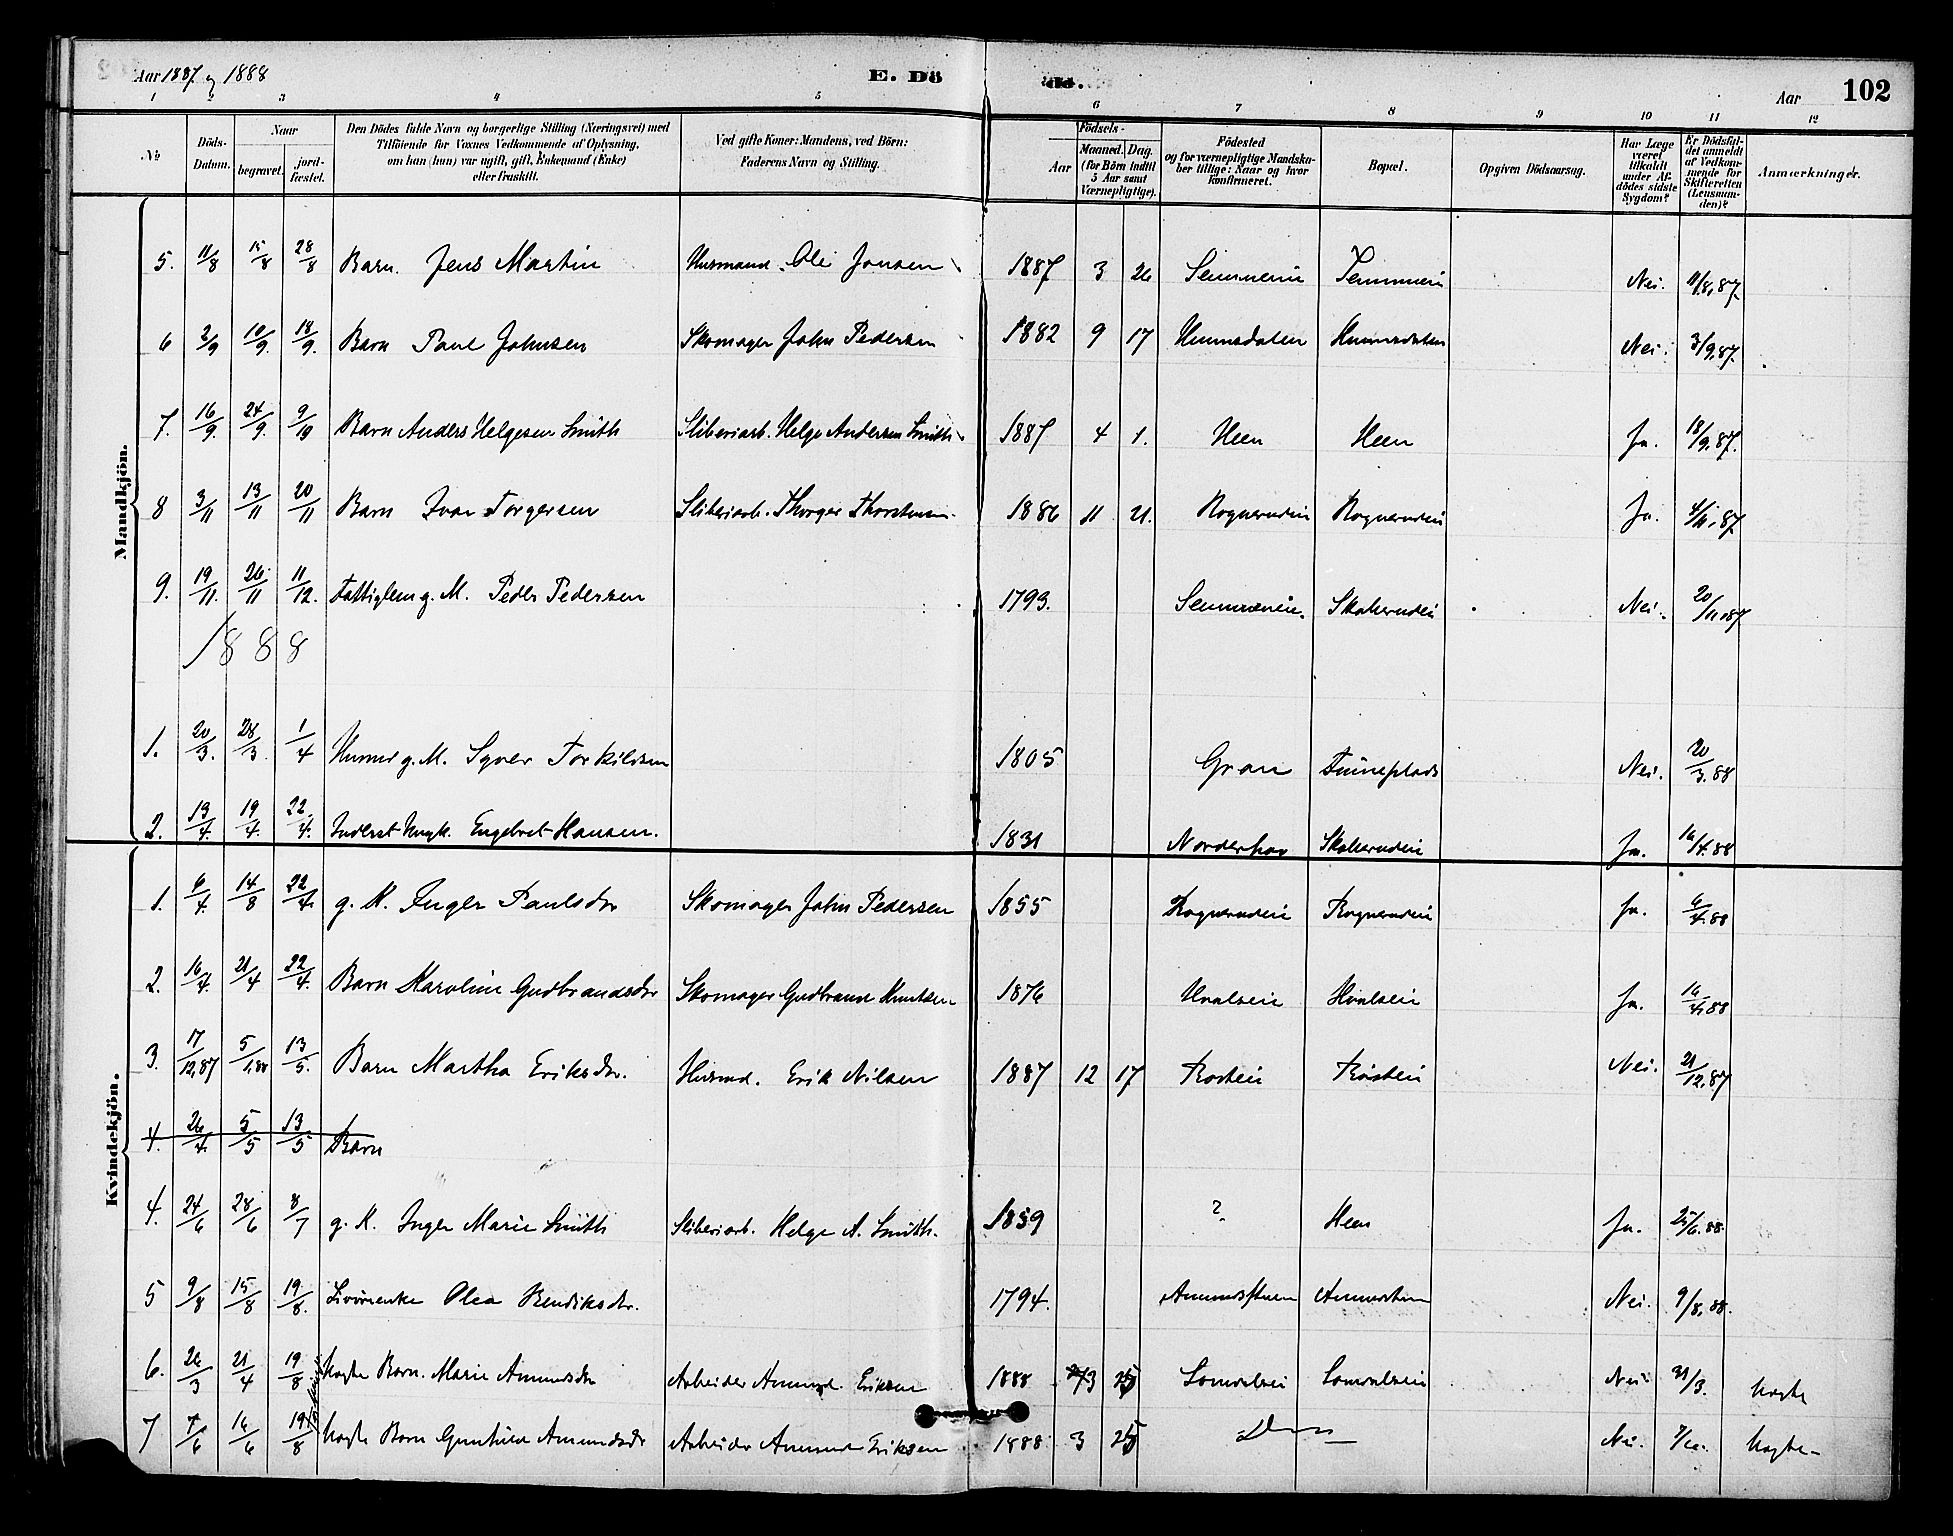 Aar 1887 og 1888 E. Döde. Aar 102
1 2 3 4 5 6 7 8 9 10 11 12
No Döds-Datum. Naar begravet. jordfæstet. Den Dödes fulde Navn og borgerlige Stilling (Næringsvei) med Tilföiende for Voxnes Vedkommende af Oplysning, om han (hun) var ugift, gift, Enkemand (Enke) eller fraskilt. Ved gifte Koner: Mandens, ved Börn: Faderens Navn og Stilling. Födsels- Aar Maaned. Dag. (for Börn indtil 5 Aar samt Værnepligtige). Födested og for værnepligtige Mandskaber tillige: Naar og hvor Konfirmeret. Bopæl. Opgiven Dödsaarsag. Har Læge været tilkaldt under Afdödes sidste Sygdom? Er Dödsfaldet anmeldt af Vedkommende for Skifteretten (Lensmanden)? Anmærkninger.
Mandkjön.
5. 11/8 15/8 28/8 Barn. Jens Martin Husmand. Ole Jonsen 1887 3 26 Semmein Semmein Nei. 11/8.87.
6 2/9 10/9. 18/9. Barn Paul Johnsen Skomager John Pedersen 1882 9 17 Hemmsdalen Hemmsdalen Nei. 3/9.87.
7. 16/9. 24/9. 9/10 Barn Anders Helgesen Smith Sliberiarb. Helge Andersen Smith 1887 4 1. Heen Heen Ja. 18/9.87.
8 3/11 13/11 20/11 Barn Ivar Torgersen Sliberiarb. Thorger Thorstensen. 1886 11 21. Rognerudei Rognerudei Ja. 4/11.87
9. 19/11. 26/11 11/12. Fattiglem g. M. Peder Pedersen 1793. Semmeneie. Skollerudei Nei. 20/11.87
1888
1. 20/3. 28/3 1/4 g. M. Syver Torkildsen 1805 Gran Nei. 20/3.88
2. 13/4. 19/4. 22/4. Inderst Ungk. Engebret Hansen. 1831 Norderhov Skollerudei Ja. 16/4.88
Kvindekjön.
1. 6/4. 14/8 22/4. g. K. Inger Paulsdr Skomager John Pedersen 1855 Rognerudeie Rognerudeie Ja. 6/4.88
2. 16/4. 21/4 22/4. Barn Karoline Gudbrandsdr Skomager Gudbrand Knutsen 1876 Hvalseie Hvalseie Ja. 16/4.88
3. 17/12,87 5/1,88 13/5. Barn Martha Eriksdr. Husmd. Erik Nilsen 1887 12 17 Rostei Rostei Nei. 21/12.87
4. 26/4. 5/5 13/5 Barn
4. 24/6 28/6 8/7 g. K. Inger Marie Smith Sliberiarb. Helge A. Smith. 1859 ? Heen Ja. 25/6.88.
5 9/8 15/8 19/8. Livörenke Olea Bendiksdr. 1794. Nei. 9/8.88.
6. 26/3 21/4 19/8. uægte Barn. Marie Amundsdr Arbeider Amund Eriksen 1888 3 25 Somdalsei Somdalseie Nei. 31/3. uægte
7 7/6 16/6 19/8 uægte Barn Gunhild Amundsdr Arbeider Amund Eriksen 1888 3 25 Nei. 7/6. uægte